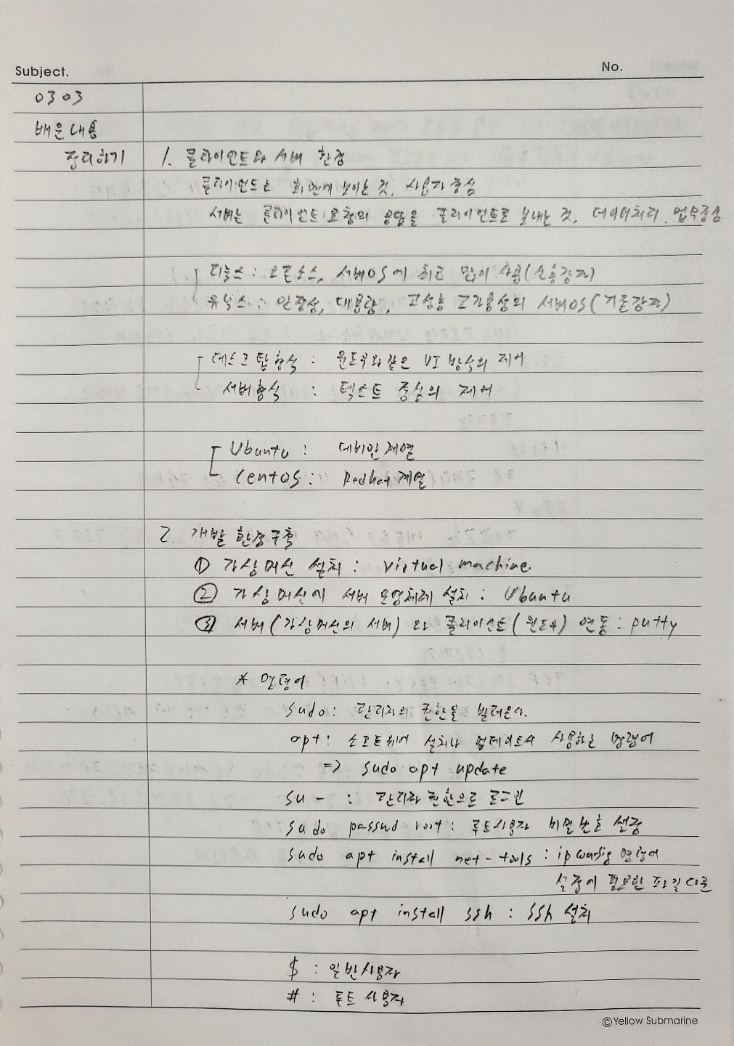 Subject.
No.
0303
배운내용
정리하기
1. 클라이언트와 서버 환경
클라이언트는 화면에 보이는 것, 사용자 중심
서버는 클라이언트 요청의 응답을 클라이언트로 보내는 것, 데이터처리, 업무중심
리눅스 : 오픈소스, 서버OS에 최고 많이 사용(신흥강자)
유닉스 : 안정성, 대용량, 고성능 고가용성의 서버OS(기존강자)
데스크탑형식 : 윈도우와같은 UI 방식의 제어
서버형식 : 텍스트 중심의 제어
Ubuntu : 데비안계열
CentOS : Redhat계열
2 개발 환경구축
① 가상머신 설치 : virtual machine
② 가상머신에 서버 운영체제 설치 : Ubuntu
③ 서버(가상머신의 서버) 와 클라이언트(윈도우) 연동 : putty
* 명령어
sudo : 관리자의 권한을 빌려온다.
opt : 소프트웨어 설치나 업데이트시 사용하는 명령어
=> sudo apt update
su - : 관리자 권한으로 로그인
sudo passwd root : 루트사용자 비밀번호 설정
sudo apt install net-tools : ipconfig 명령어
설정에 필요한 파일다운
sudo apt install ssh : ssh 설치
$ : 일반사용자
# : 루트 사용자
©Yellow Submarine